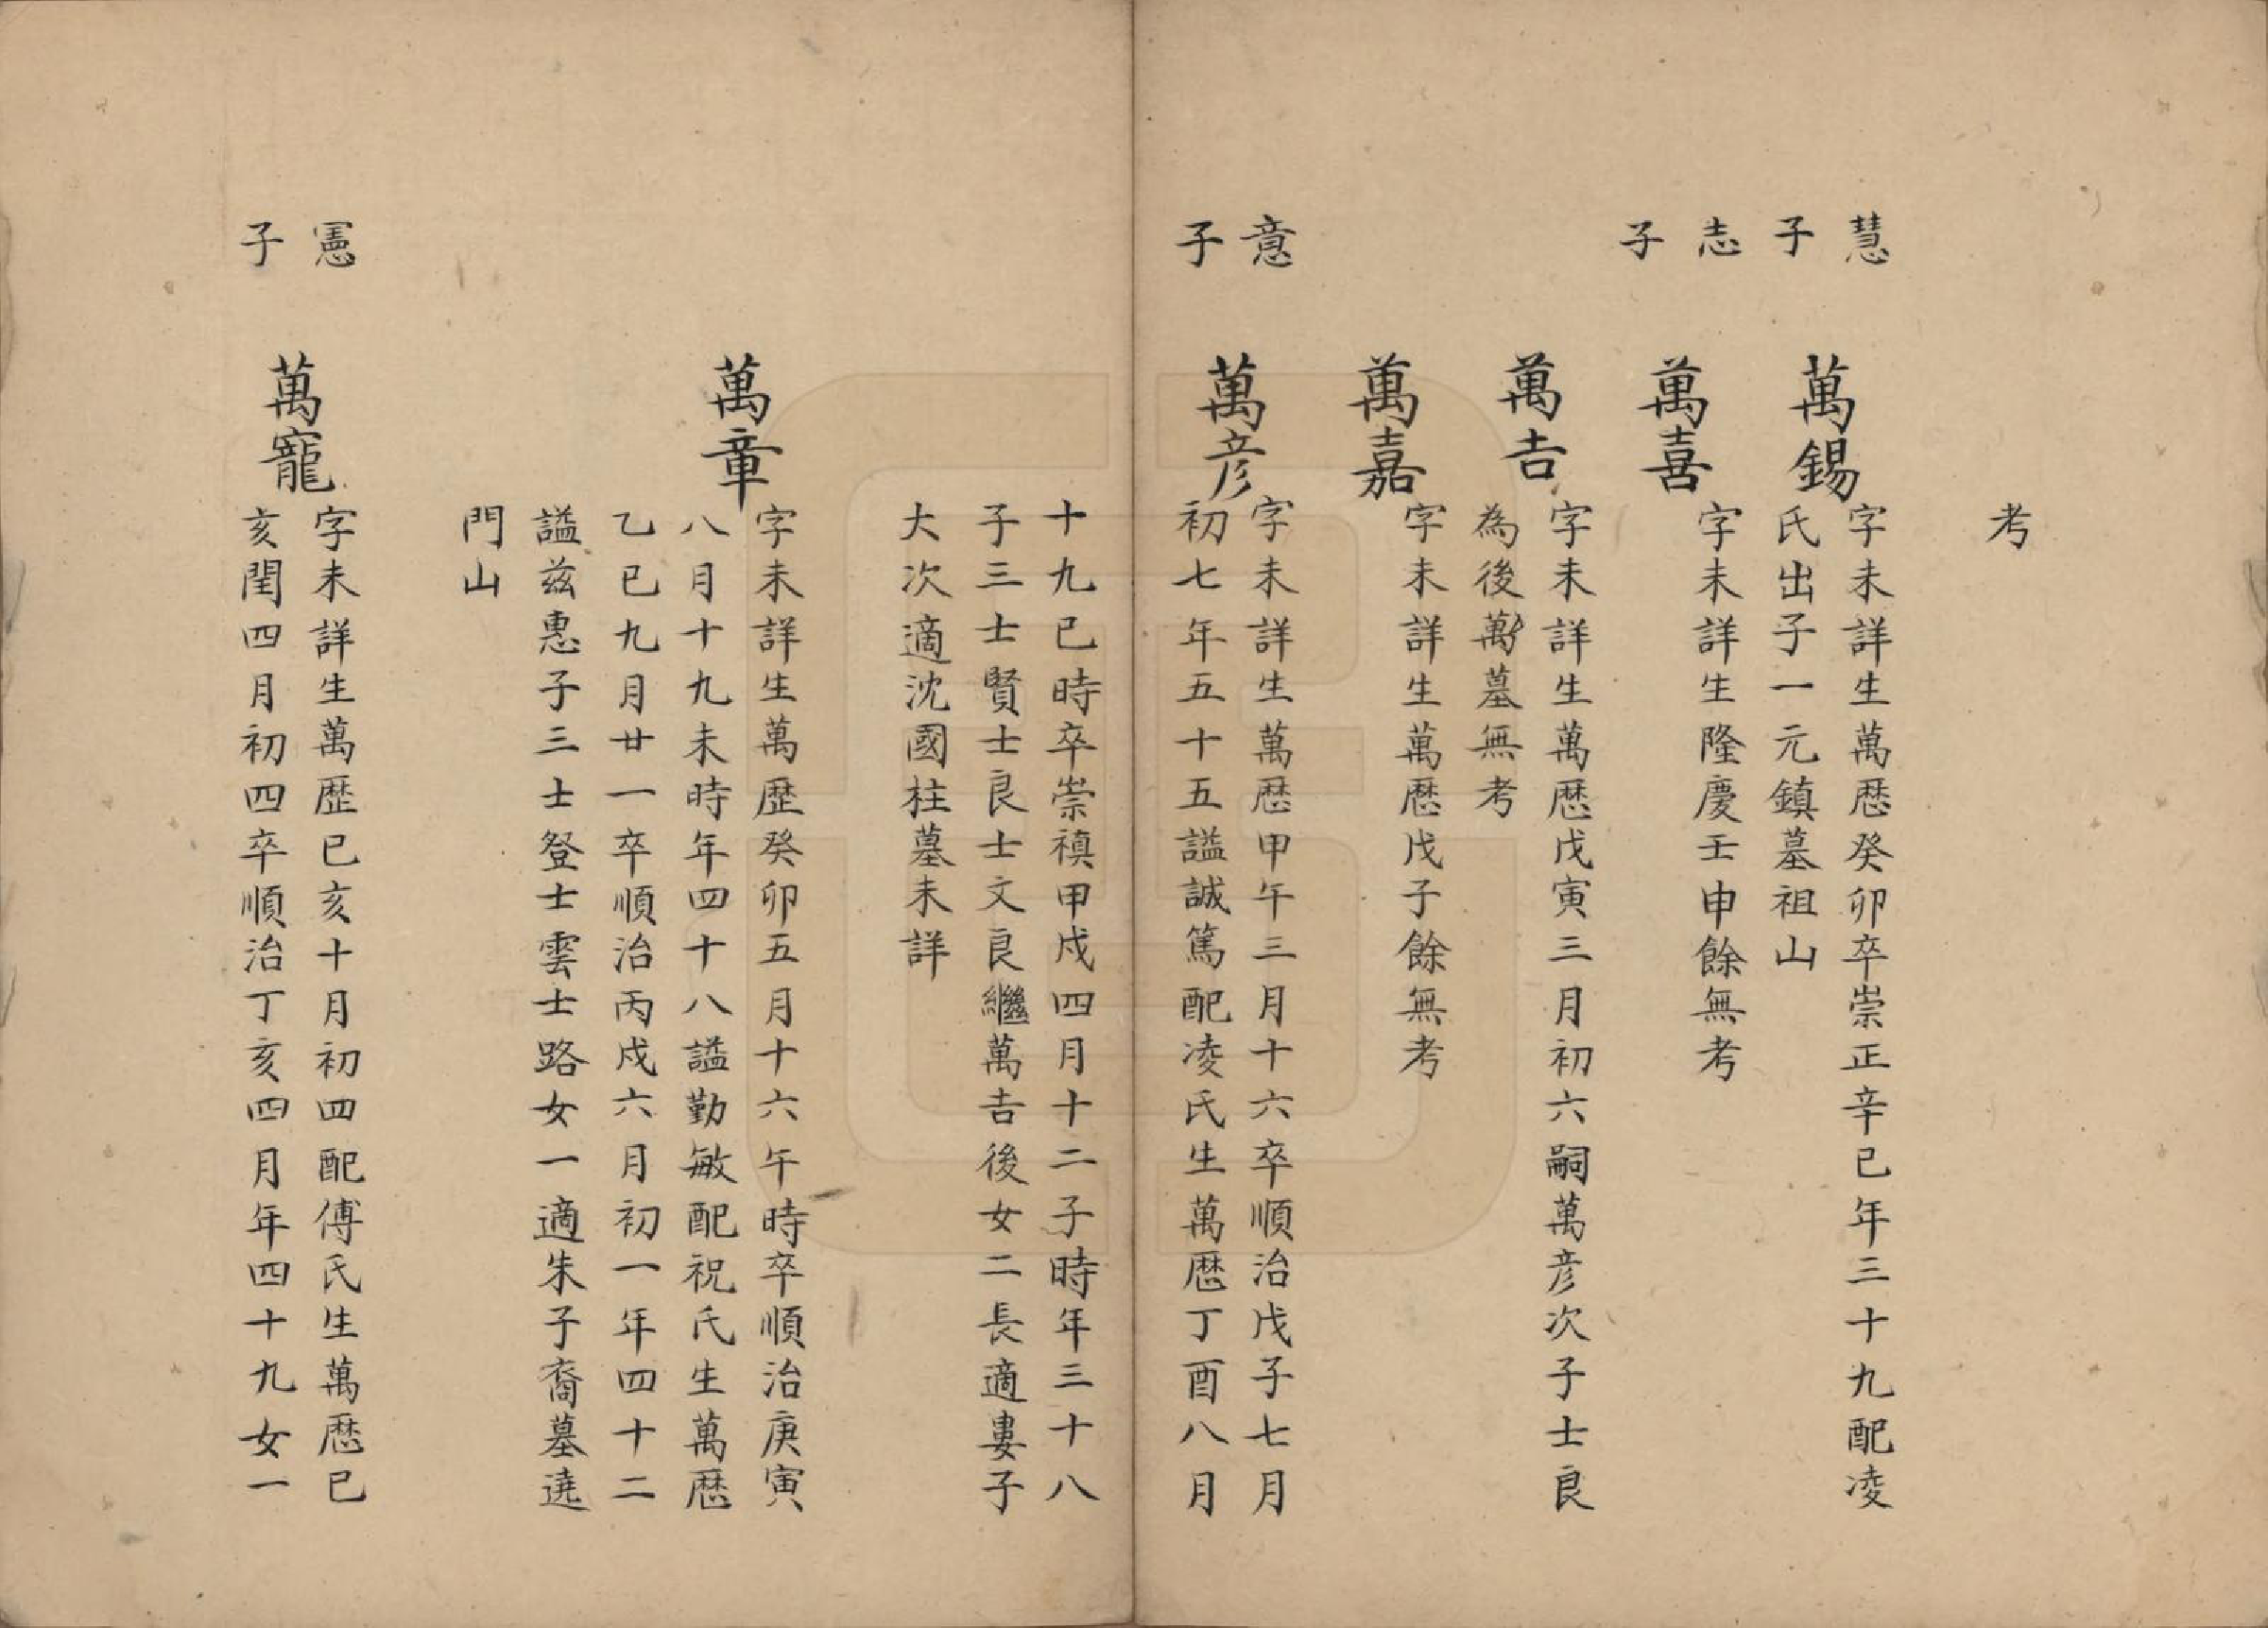 考
慧子
萬錫
字未詳生萬厯癸卯卒崇正辛巳年三十九配凌
氏出子一元鎮墓祖山
志子
萬喜
字未詳生隆慶壬申餘無考
萬吉
字未詳生萬厯戊寅三月初六嗣萬彦次子士良
為後萬墓無考
萬嘉
字未詳生萬厯戊子餘無考
意子
萬彦
字未詳生萬厯甲午三月十六卒順治戊子七月
初七年五十五謚誠篤配凌氏生萬厯丁酉八月
十九巳時卒崇禎甲戍四月十二子時年三十八
子三士賢士良士文良繼萬吉後女二長適婁子
大次適沈國柱墓未詳
萬章
字未詳生萬歷癸卯五月十六午時卒順治庚寅
八月十九未時年四十八謚勤敏配祝氏生萬厯
乙巳九月廿一卒順治丙戍六月初一年四十二
謚兹惠子三士登士雲士路女一適朱子裔墓遶
門山
憲子
萬寵
字未詳生萬歷己亥十月初四配傅氏生萬厯己
亥閏四月初四卒順治丁亥四月年四十九女一